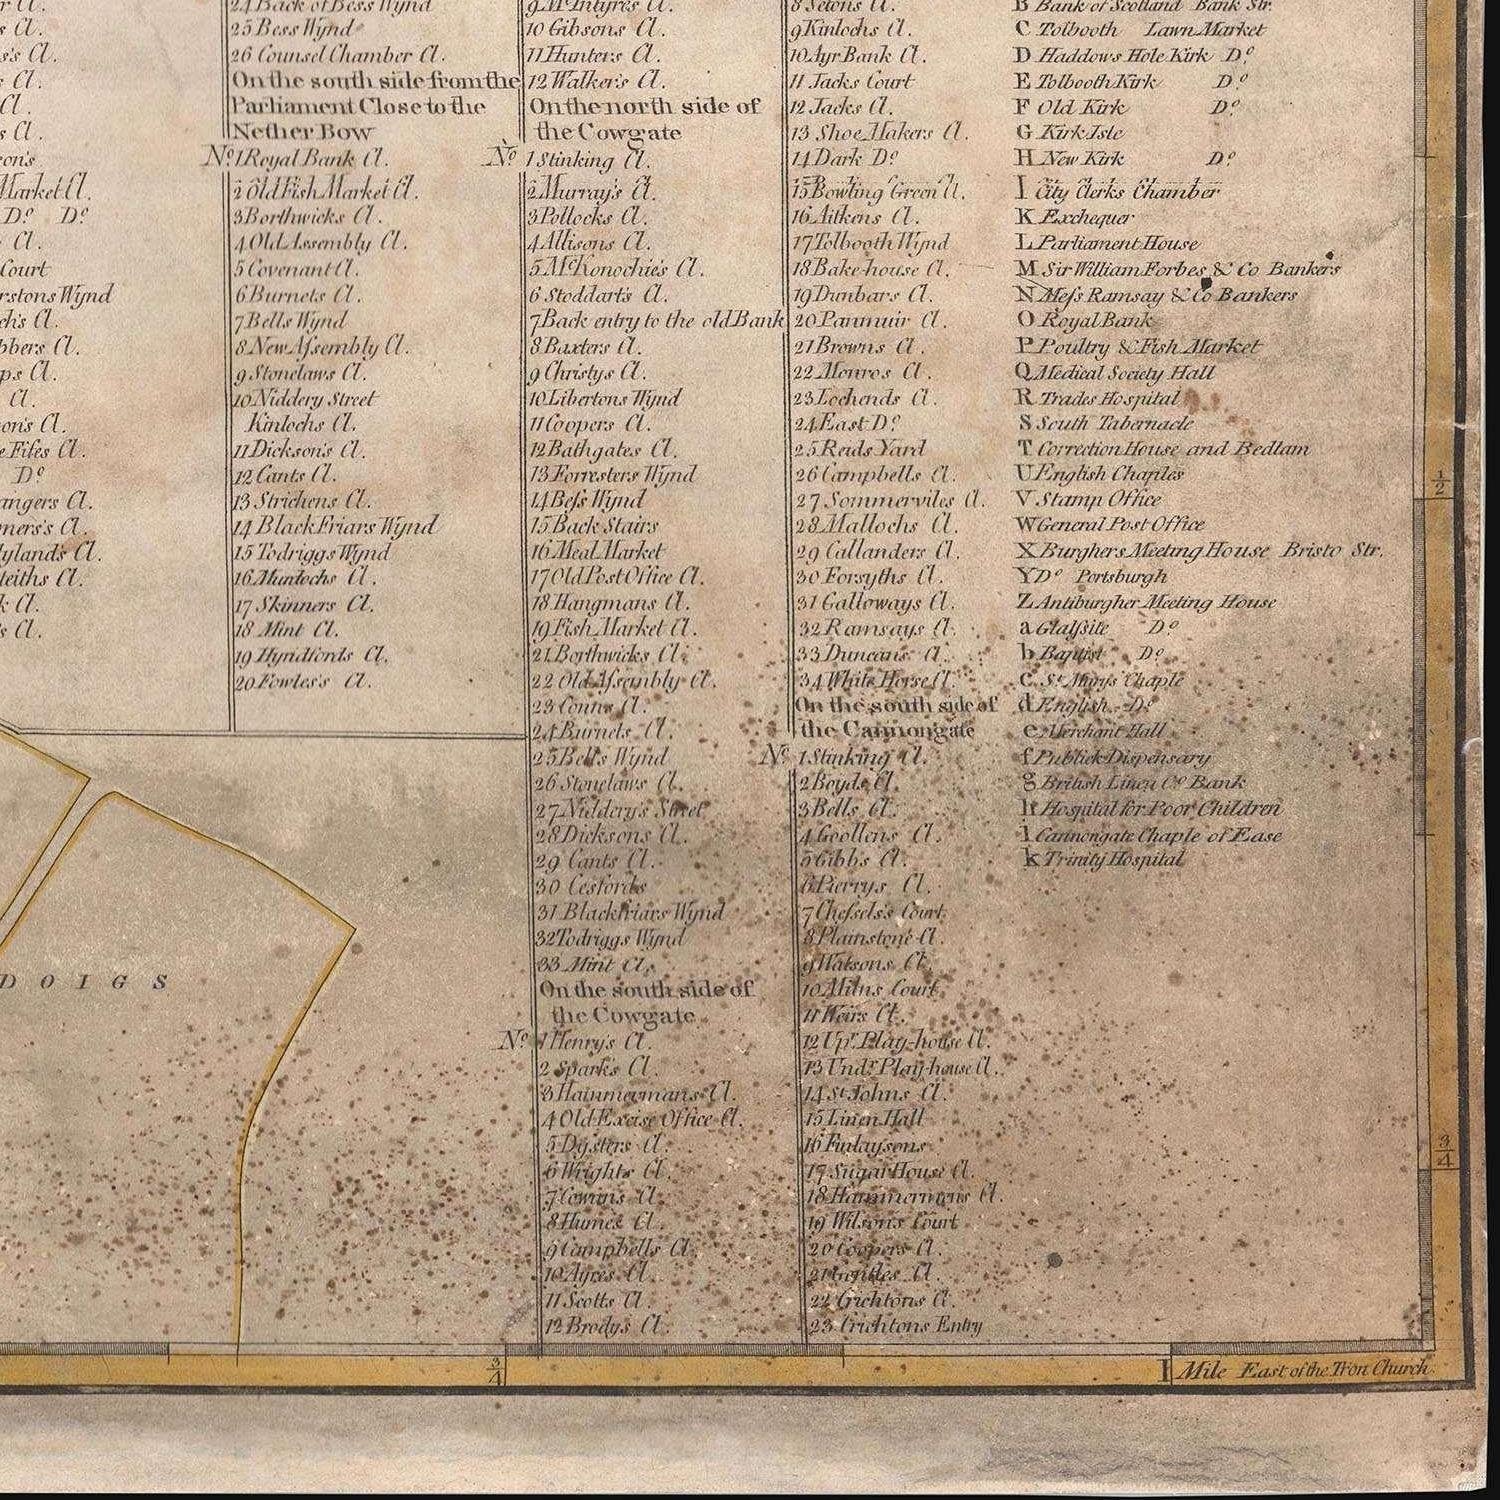 r Cl.
s Cl.
s's Cl.
s Cl.
Cl.
s Cl.
on's
Market Cl.
Do Do
Cl.
Court
rstons Wynd
ch's Cl.
bbers Cl.
ps Cl.
Cl.
on's Cl.
e Fifes Cl.
Do
angers Cl.
mers's Cl.
ylands Cl.
leiths Cl.
k Cl.
s Cl.
24 Back of Bess Wynd
25 Bess Wynd
26 Counsel Chamber Cl.
On the south side from the
Parliament Close to the
Nether Bow
No. 1 Royal Bank Cl.
2 Old Fish Market Cl.
3 Borthwicks Cl.
4 Old Assembly Cl.
5 Covenant Cl.
6 Burnets Cl.
7 Bells Wynd
8 New Aſsembly Cl.
9 Stonelaws Cl.
10 Niddery Street
Kinlochs Cl.
11 Dickson's Cl.
12 Cants Cl.
13 Strichens Cl.
14 Black Friars Wynd
15 Todriggs Wynd
16 Murdochs Cl.
17 Skinners Cl.
18 Mint Cl.
19 Hyndfords Cl.
20 Fowles's Cl.
9 McIntyres Cl.
10 Gibsons Cl.
11 Hunters Cl.
12 Walkers Cl.
On the north side of
the Cowgate
No. 1 Stinking Cl.
2 Murray's Cl.
3 Pollocks Cl.
4 Allisons Cl.
5 McKonochie's Cl.
6 Stoddarts Cl.
7 Back entry to the old Bank
8 Baxters Cl.
9 Christys Cl.
10 Libertons Wynd
11 Coopers Cl.
12 Bathgates Cl.
13 Forresters Wynd
14 Beſs Wynd
15 Back Stairs
16 Meal Market
17 Old Post Office Cl.
18 Hangmans Cl.
19 Fish Market Cl.
21 Borthwicks Cl.
22 Old Aſsembly Cl.
23 Conns Cl.
24 Burnets Cl.
25 Bells Wynd
26 Stonelaws Cl.
27 Niddery's Street
28 Dicksons Cl.
29 Cants Cl.
30 Cesfords
31 Blackfriars Wynd
32 Todriggs Wynd
33 Mint Cl.
On the south side of
the Cowgate
No. 1 Henry's Cl.
2 Spark's Cl.
3 Hammermans Cl.
4 Old Excise Office Cl.
5 Dysters Cl.
6 Wrights Cl.
7 Cowans Cl.
8 Humes Cl.
9 Campbells Cl.
10 Ayres Cl.
11 Scotts Cl.
12 Brodys Cl.
8 Setons Cl.
9 Kinlochs Cl.
10 Ayr Bank Cl.
11 Jacks Court
12 Jacks Cl.
13 Shoe Makers Cl.
14 Dark Do
15 Bowling Green Cl.
16 Aitkens Cl.
17 Tolbooth Wynd
18 Bake-house Cl.
19 Dunbars Cl.
20 Panmuir Cl.
21 Browns Cl.
22 Monros Cl.
23 Lochends Cl.
24 East Do
25 Reids Yard
26 Campbells Cl.
27 Sommerviles Cl.
28 Mallochs Cl.
29 Callanders Cl.
30 Forsyths Cl.
31 Galloways Cl.
32 Ramsays Cl.
33 Duncans Cl.
34 White Horse Cl.
On the south side of
the Cannongate
No. 1 Stinking Cl.
2 Boyds Cl.
3 Bells Cl.
4 Goollens Cl.
5 Gibbs Cl.
6 Pierrys Cl.
7 Cheſsels's Court
8 Plainstone Cl.
9 Watsons Cl.
10 Milns Court
11 Weirs Cl.
12 Upr. Play-house Cl.
13 Undr. Play-house Cl.
14 St. Johns Cl.
15 Linen Hall
16 Finlaysons
17 Sugar House Cl.
18 Hammermens Cl.
19 Wilsons Court
20 Coopers Cl.
21 Cl.
22 Crichtons Cl.
23 Crichtons Entry
B Bank of Scotland Bank Str.
C Tolbooth Lawn Market
D Haddows Hole Kirk Do
E Tolbooth Kirk Do
F Old Kirk Do
G Kirk Isle
H New Kirk Do
I City Clerks Chamber
K Exchequer
L Parliament House
M Sir William Forbes & Co Bankers
N Meſs Ramsay & Co Bankers
O Royal Bank
P Poultry & Fish Market
Q Medical Society Hall
R Trades Hospital
S South Tabernacle
T Correction House and Bedlam
U English Chaples
V Stamp Office
W General Post Office
X Burghers Meeting House Bristo Str.
Y Do Portsburgh
Z Antiburgher Meeting House
a Glaſsite Do
b Baptist Do
c St. Marys Chaple
d English Do
e Merchant Hall
f Publick Dispensary
g British Linen Co. Bank
h Hospital for Poor Children
i Cannongate Chaple of Ease
k Trinity Hospital
DOIGS
1/2
3/4
3/4
1 Mile East of the Tron Church